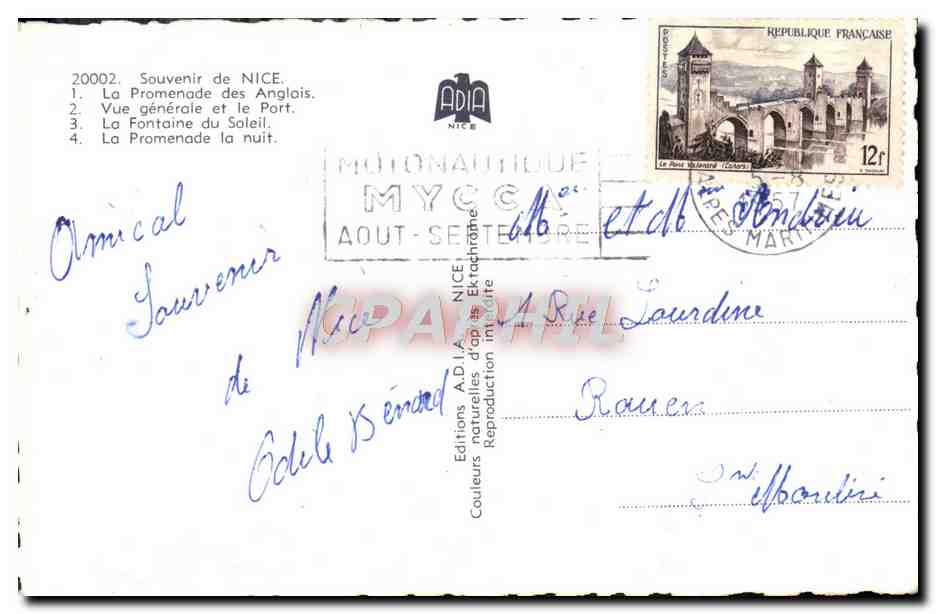 20002. Souvenir de NICE.
1. La Promenade des Anglais.
2. Vue générale et le Port.
3. La Fontaine du Soleil.
4. La Promenade la nuit.
ADIA
NICE
POSTES
REPUBLIQUE FRANÇAISE
Le Pont Valentré (Cahors)
12f
MOTONAUTIQUE
MYCCA
AOUT - SEPTEMBRE
5-8
57
ALPES MARITIMES
Amical
Souvenir
de Nice
Odile Bénard
Editions A.D.I.A. NICE
Couleurs naturelles d'après Ektachrome
Reproduction interdite
et M
Rue Lourdine
Rouen
CPAPHIL